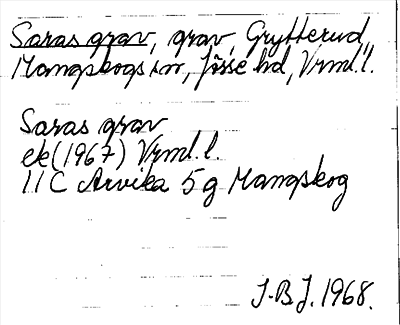 Saras grav, grav, Grytterud,
Mangskogs sn, Jösse hd, Vrml.l.
Saras grav
ek (1967) Vrml.l.
11 C Arvika 5 g Mangskog
J-B J. 1968.